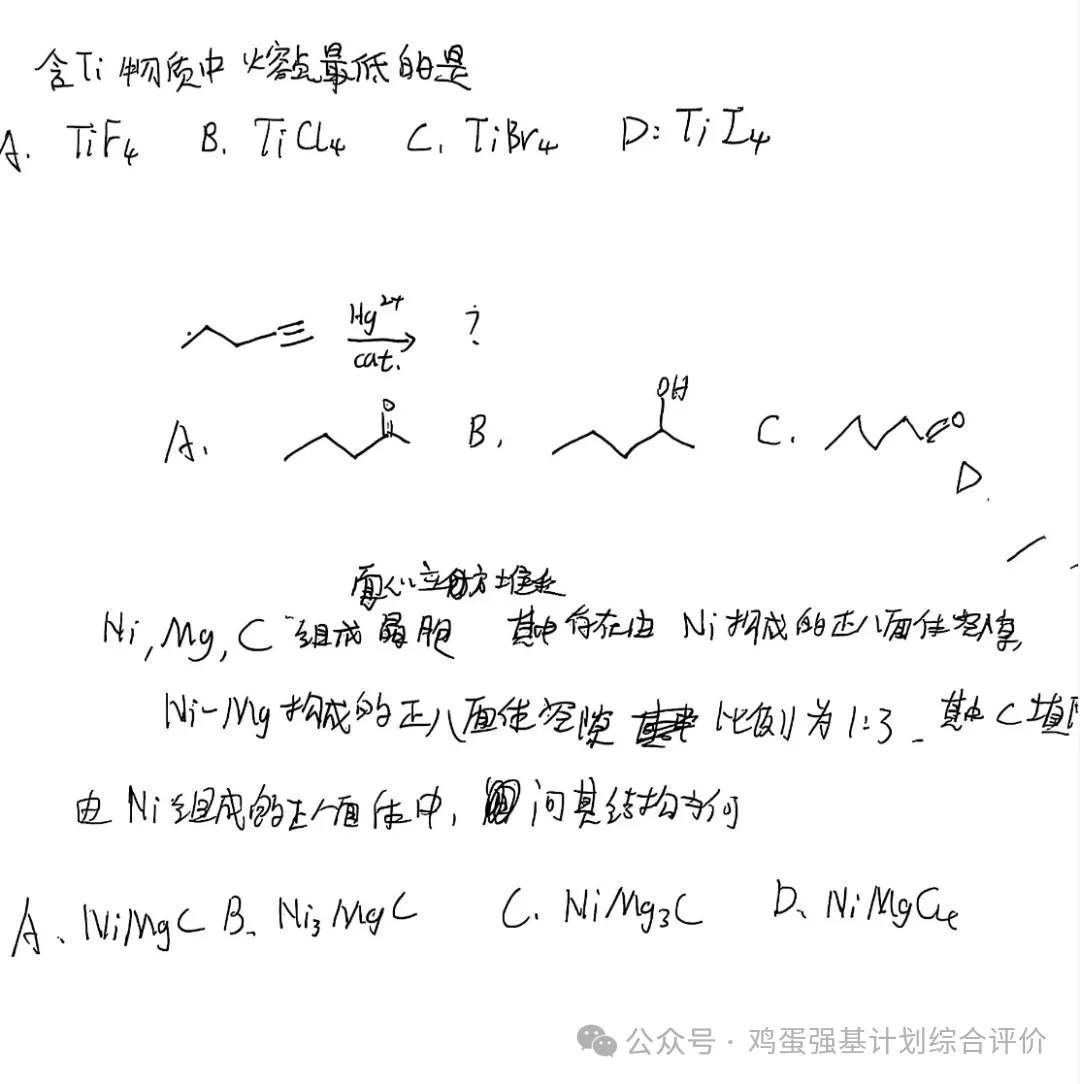 含Ti物质中熔点最低的是
A. TiF₄ B. TiCl₄ C. TiBr₄ D: TiI₄
Hg²⁺
cat.
?
A. O B. OH C. O
D.
面心立方堆积
Ni, Mg, C 组成晶胞 其中存在由 Ni构成的正八面体空隙,
Ni-Mg构成的正八面体空隙 比例为1:3 其中C填
由Ni组成的正八面体中, 问其结构为何
A、NiMgC B、Ni₃MgC C. NiMg₃C D、NiMgC₄
公众号·鸡蛋强基计划综合评价